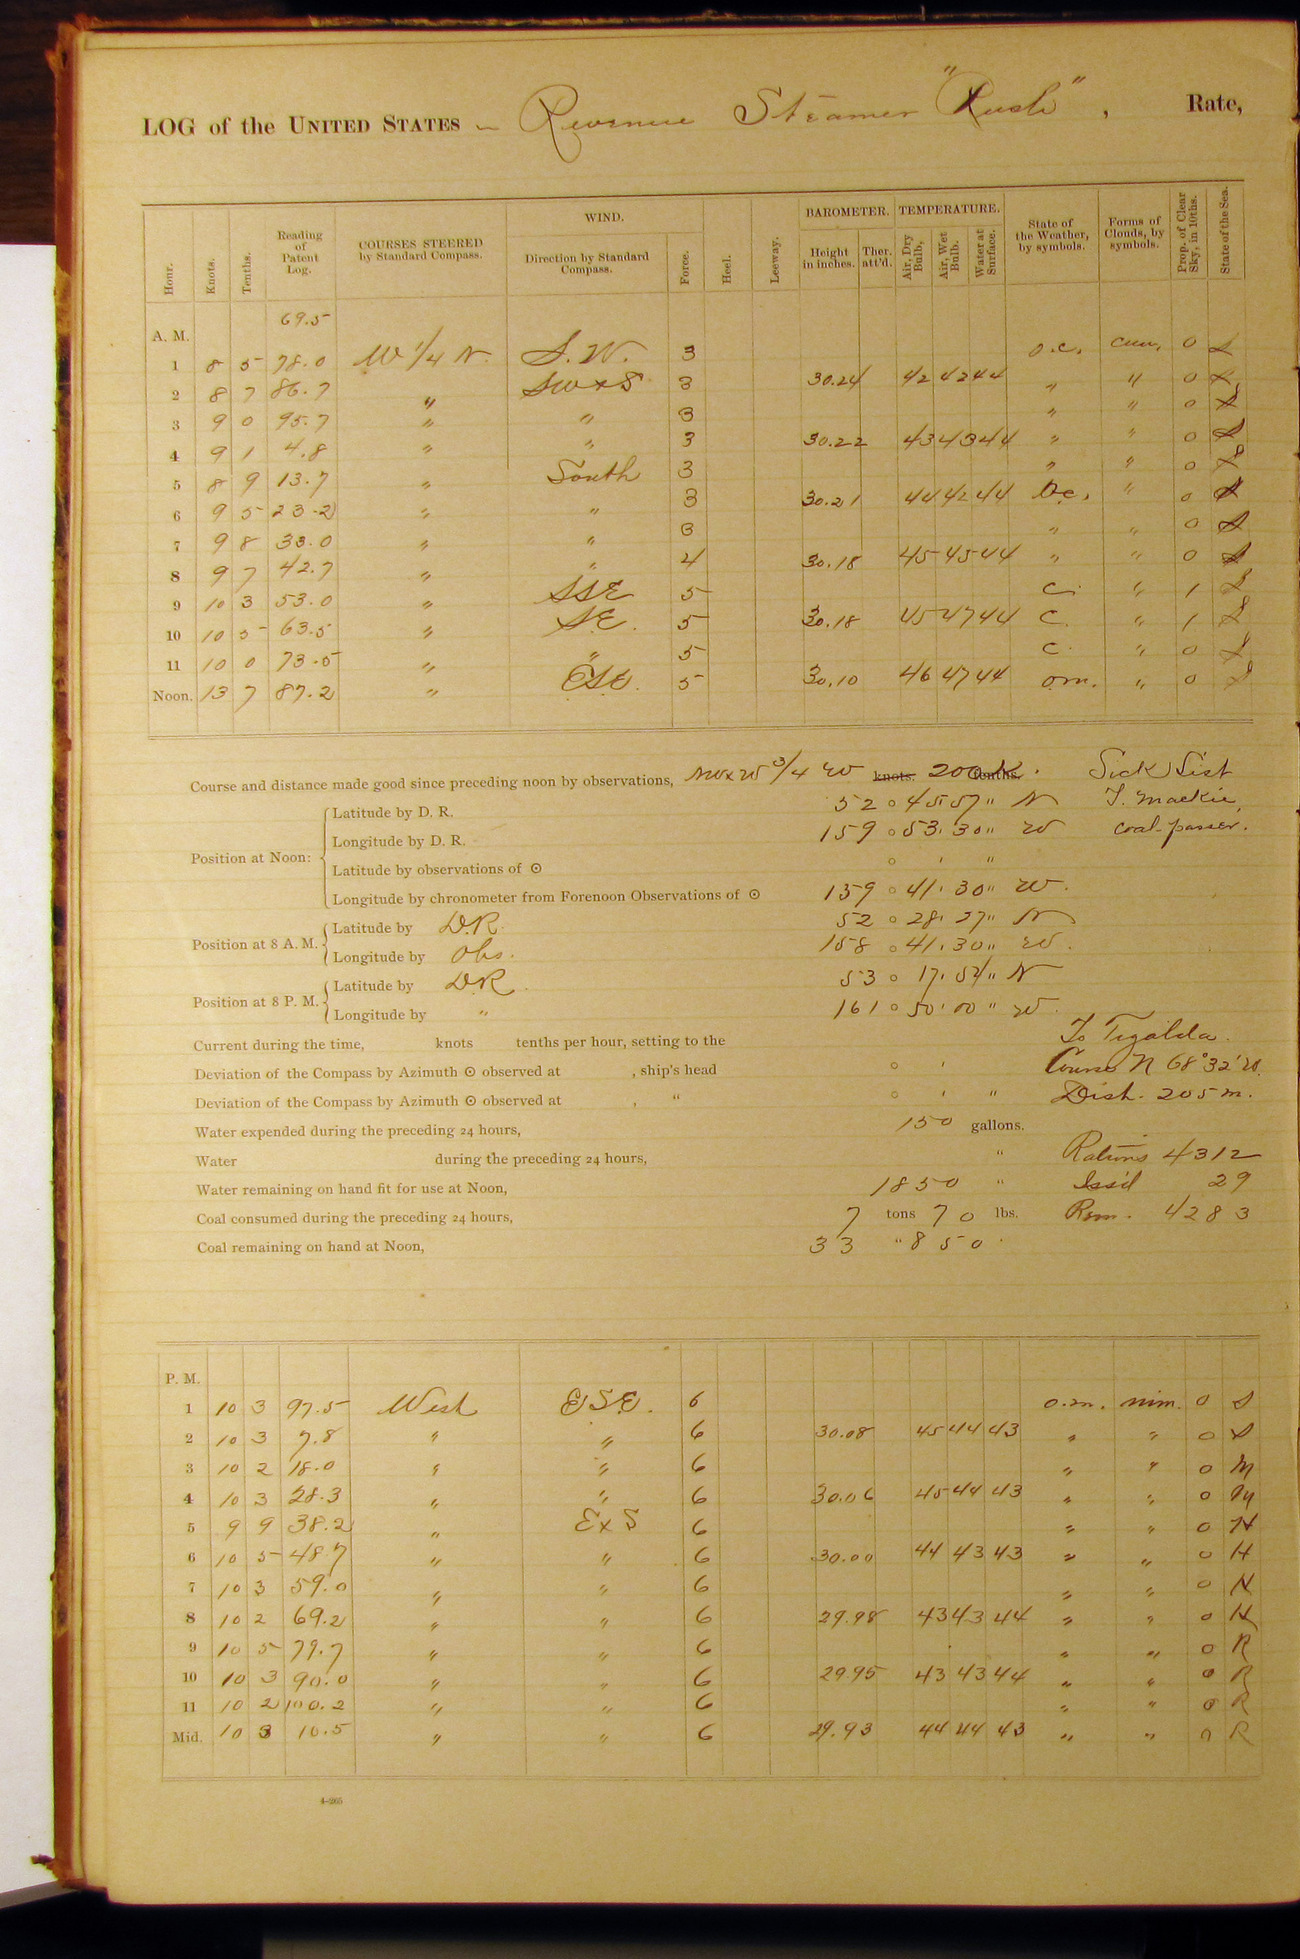 LOG of the UNITED STATES Revenue Steamer "Rush", Rate,
Hour. Knots. Tenths. Reading of Patent Log. COURSES STEERED by Standard Compass. WIND. Direction by Standard Compass. Force. Heel. Leeway. BAROMETER. Height in inches. Ther. att'd. TEMPERATURE. Air, Dry Bulb, Air, Wet Bulb. Water at Surface. State of the Weather, by symbols. Forms of Clouds, by symbols. Prop. of Clear Sky, in 10ths. State of the Sea.
69.5
A. M.
1 8 5 78.0 W 1/4 N. S. W. 3 o.c. cum. 0 S
2 8 7 86.7 " SWxS 3 30.24 42 42 44 " " 0 S
3 9 0 95.7 " " 3 " " 0 S
4 9 1 4.8 " " 3 30.22 43 43 44 " " 0 S
5 8 9 13.7 " South 3 " " 0 S
6 9 5 23.2 " " 3 30.21 44 42 44 b.c. " 0 S
7 9 8 33.0 " " 3 " " 0 S
8 9 7 42.7 " " 4 30.18 45 45 44 " " 0 S
9 10 3 53.0 " SSE 5 c. " 1 S
10 10 5 63.5 " SE. 5 30.18 45 47 44 c. " 1 S
11 10 0 73.5 " " 5 c. " 0 S
Noon. 13 7 87.2 " ESE. 5 30.10 46 47 44 om. " 0 S
Course and distance made good since preceding noon by observations, NWxW 3/4 W knots, 200 tenths. Sick List
Latitude by D. R. 52 ° 45' 57" N T. Mackie,
Longitude by D. R. 159 ° 53' 30" W coal-passer.
Position at Noon:
Latitude by observations of ⊙ ° ' "
Longitude by chronometer from Forenoon Observations of ⊙ 159 ° 41' 30" W.
Latitude by D.R. 52 ° 28' 27" N
Position at 8 A. M.
Longitude by Obs. 158 ° 41' 30" W.
Latitude by D.R. 53 ° 17' 52" N
Position at 8 P. M.
Longitude by " 161 ° 50' 00" W.
Current during the time, knots tenths per hour, setting to the To Tigalda.
Deviation of the Compass by Azimuth ⊙ observed at , ship's head ° ' Course N 68° 32' W.
Deviation of the Compass by Azimuth ⊙ observed at , " ° ' " Dist. 205 m.
Water expended during the preceding 24 hours, 150 gallons.
Water during the preceding 24 hours, " Rations 4312
Water remaining on hand fit for use at Noon, 1850 " Iss'd 29
Coal consumed during the preceding 24 hours, 7 tons 70 lbs. Rem. 4283
Coal remaining on hand at Noon, 33 " 850 "
P. M.
1 10 3 97.5 West ESE. 6 o.m. nim. 0 S
2 10 3 7.8 " " 6 30.08 45 44 43 " " 0 S
3 10 2 18.0 " " 6 " " 0 M
4 10 3 28.3 " " 6 30.06 45 44 43 " " 0 M
5 9 9 38.2 " ExS 6 " " 0 H
6 10 5 48.7 " " 6 30.00 44 43 43 " " 0 H
7 10 3 59.0 " " 6 " " 0 H
8 10 2 69.2 " " 6 29.98 43 43 44 " " 0 H
9 10 5 79.7 " " 6 " " 0 R
10 10 3 90.0 " " 6 29.95 43 43 44 " " 0 R
11 10 2 100.2 " " 6 " " 0 R
Mid. 10 3 10.5 " " 6 29.93 44 44 43 " " 0 R
4-265